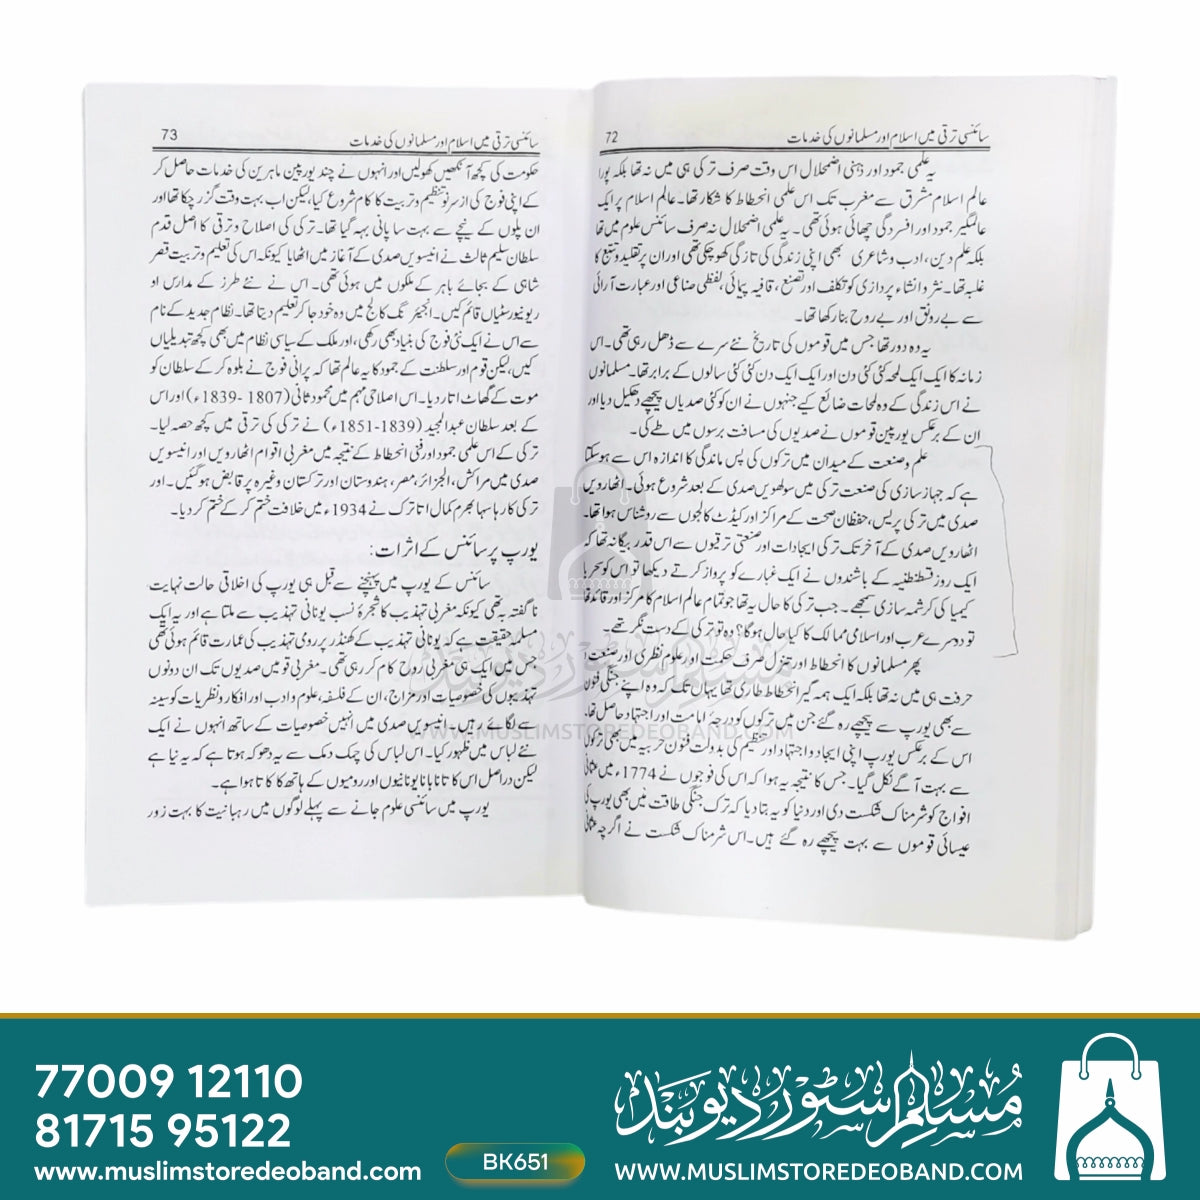 سائنسی ترقی میں اسلام اور مسلمانوں کی خدمات 72
یہ علمی جمود اور ذہنی اضمحلال اس وقت صرف ترکی ہی میں نہ تھا بلکہ پورا
عالم اسلام مشرق سے مغرب تک اس علمی انحطاط کا شکار تھا۔ عالم اسلام پر ایک
عالمگیر جمود اور افسردگی چھائی ہوئی تھی۔ یہ علمی اضمحلال نہ صرف سائنس علوم میں تھا
بلکہ علم دین، ادب و شاعری بھی اپنی زندگی کی تازگی کھو چکی تھی اور ان پر تقلید و تتبع کا
غلبہ تھا۔ نثر و انشاء پردازی کو تکلف اور تصنع، قافیہ پیمائی، لفظی صناعی اور عبارت آرائی
سے بے رونق اور بے روح بنا رکھا تھا۔
یہ وہ دور تھا جس میں قوموں کی تاریخ نئے سرے سے ڈھل رہی تھی۔ اس
زمانہ کا ایک ایک لمحہ کئی کئی دن اور ایک ایک دن کئی کئی سالوں کے برابر تھا۔ مسلمانوں
نے اس زندگی کے وہ لمحات ضائع کیے جنہوں نے ان کو کئی صدیاں پیچھے دھکیل دیا اور
ان کے برعکس یورپین قوموں نے صدیوں کی مسافت برسوں میں طے کی۔
علم و صنعت کے میدان میں ترکوں کی پس ماندگی کا اندازہ اس سے ہو سکتا
ہے کہ جہاز سازی کی صنعت ترکی میں سولھویں صدی کے بعد شروع ہوئی۔ اٹھارویں
صدی میں ترکی پریس، حفظان صحت کے مراکز اور کیڈٹ کالجوں سے روشناس ہوا تھا۔
اٹھارویں صدی کے آخر تک ترکی ایجادات اور صنعتی ترقیوں سے اس قدر بیگانہ تھا کہ
ایک روز قسطنطنیہ کے باشندوں نے ایک غبارے کو پرواز کرتے دیکھا تو اس کو سحر یا
کیمیا کی کرشمہ سازی سمجھے۔ جب ترکی کا حال یہ تھا جو تمام عالم اسلام کا مرکز اور قائد تھا
تو دوسرے عرب اور اسلامی ممالک کا کیا حال ہوگا؟ وہ تو ترکی کے دست نگر تھے۔
پھر مسلمانوں کا انحطاط اور تنزل صرف حکمت اور علوم نظری اور صنعت و
حرفت ہی میں نہ تھا بلکہ ایک ہمہ گیر انحطاط طاری تھا یہاں تک کہ وہ اپنے جنگی فنون
سے بھی یورپ سے پیچھے رہ گئے جن میں ترکوں کو درجۂ امامت اور اجتہاد حاصل تھا۔
اس کے برعکس یورپ اپنی ایجاد و اجتہاد اور تنظیم کی بدولت فنون حربیہ میں بھی ترکوں
سے بہت آگے نکل گیا۔ جس کا نتیجہ یہ ہوا کہ اس کی فوجوں نے 1774ء میں عثمانی
افواج کو شرمناک شکست دی اور دنیا کو یہ بتا دیا کہ ترک جنگی طاقت میں بھی یورپ کی
عیسائی قوموں سے بہت پیچھے رہ گئے ہیں۔ اس شرمناک شکست نے اگرچہ عثمانی
سائنسی ترقی میں اسلام اور مسلمانوں کی خدمات 73
حکومت کی کچھ آنکھیں کھولیں اور انہوں نے چند یورپین ماہرین کی خدمات حاصل کر
کے اپنی فوج کی از سر نو تنظیم و تربیت کا کام شروع کیا، لیکن اب بہت وقت گزر چکا تھا اور
ان پلوں کے نیچے سے بہت سا پانی بہہ گیا تھا۔ ترکی کی اصلاح و ترقی کا اصل قدم
سلطان سلیم ثالث نے انیسویں صدی کے آغاز میں اٹھایا کیونکہ اس کی تعلیم و تربیت قصر
شاہی کے بجائے باہر کے ملکوں میں ہوئی تھی۔ اس نے نئے طرز کے مدارس او
ریونیورسٹیاں قائم کیں۔ انجینئرنگ کالج میں وہ خود جا کر تعلیم دیتا تھا۔ نظام جدید کے نام
سے اس نے ایک نئی فوج کی بنیاد بھی رکھی، اور ملک کے سیاسی نظام میں بھی کچھ تبدیلیاں
کیں، لیکن قوم اور سلطنت کے جمود کا یہ عالم تھا کہ پرانی فوج نے بلوہ کر کے سلطان کو
موت کے گھاٹ اتار دیا۔ اس اصلاحی مہم میں محمود ثانی (1807 -1839ء) اور اس
کے بعد سلطان عبدالمجید (1839-1851ء) نے ترکی کی ترقی میں کچھ حصہ لیا۔
ترکی کے اس علمی جمود اور فنی انحطاط کے نتیجہ میں مغربی اقوام اٹھارویں اور انیسویں
صدی میں مراکش، الجزائر، مصر، ہندوستان اور ترکستان وغیرہ پر قابض ہو گئیں۔ اور
ترکی کا رہا سہا بھرم کمال اتاترک نے 1934ء میں خلافت ختم کر کے ختم کر دیا۔
یورپ پر سائنس کے اثرات:
سائنس کے یورپ میں پہنچنے سے قبل ہی یورپ کی اخلاقی حالت نہایت
ناگفتہ بہ تھی کیونکہ مغربی تہذیب کا شجرۂ نسب یونانی تہذیب سے ملتا ہے اور یہ ایک
مسلمہ حقیقت ہے کہ یونانی تہذیب کے کھنڈر پر رومی تہذیب کی عمارت قائم ہوئی تھی
جس میں ایک ہی مغربی روح کام کر رہی تھی۔ مغربی قومیں صدیوں تک ان دونوں
تہذیبوں کی خصوصیات اور مزاج، ان کے فلسفہ، علوم و ادب اور افکار و نظریات کو سینہ
سے لگائے رہیں۔ انیسویں صدی میں انہیں خصوصیات کے ساتھ انہوں نے ایک
نئے لباس میں ظہور کیا۔ اس لباس کی چمک دمک سے یہ دھوکہ ہوتا ہے کہ یہ نیا ہے
لیکن دراصل اس کا تانا بانا یونانیوں اور رومیوں کے ہاتھ کا کاتا ہوا ہے۔
یورپ میں سائنسی علوم جانے سے پہلے لوگوں میں رہبانیت کا بہت زور
مسلم سٹور دیوبند
WWW.MUSLIMSTOREDEOBAND.COM
77009 12110
81715 95122
www.muslimstoredeoband.com
BK651
مسلم سٹور دیوبند
WWW.MUSLIMSTOREDEOBAND.COM